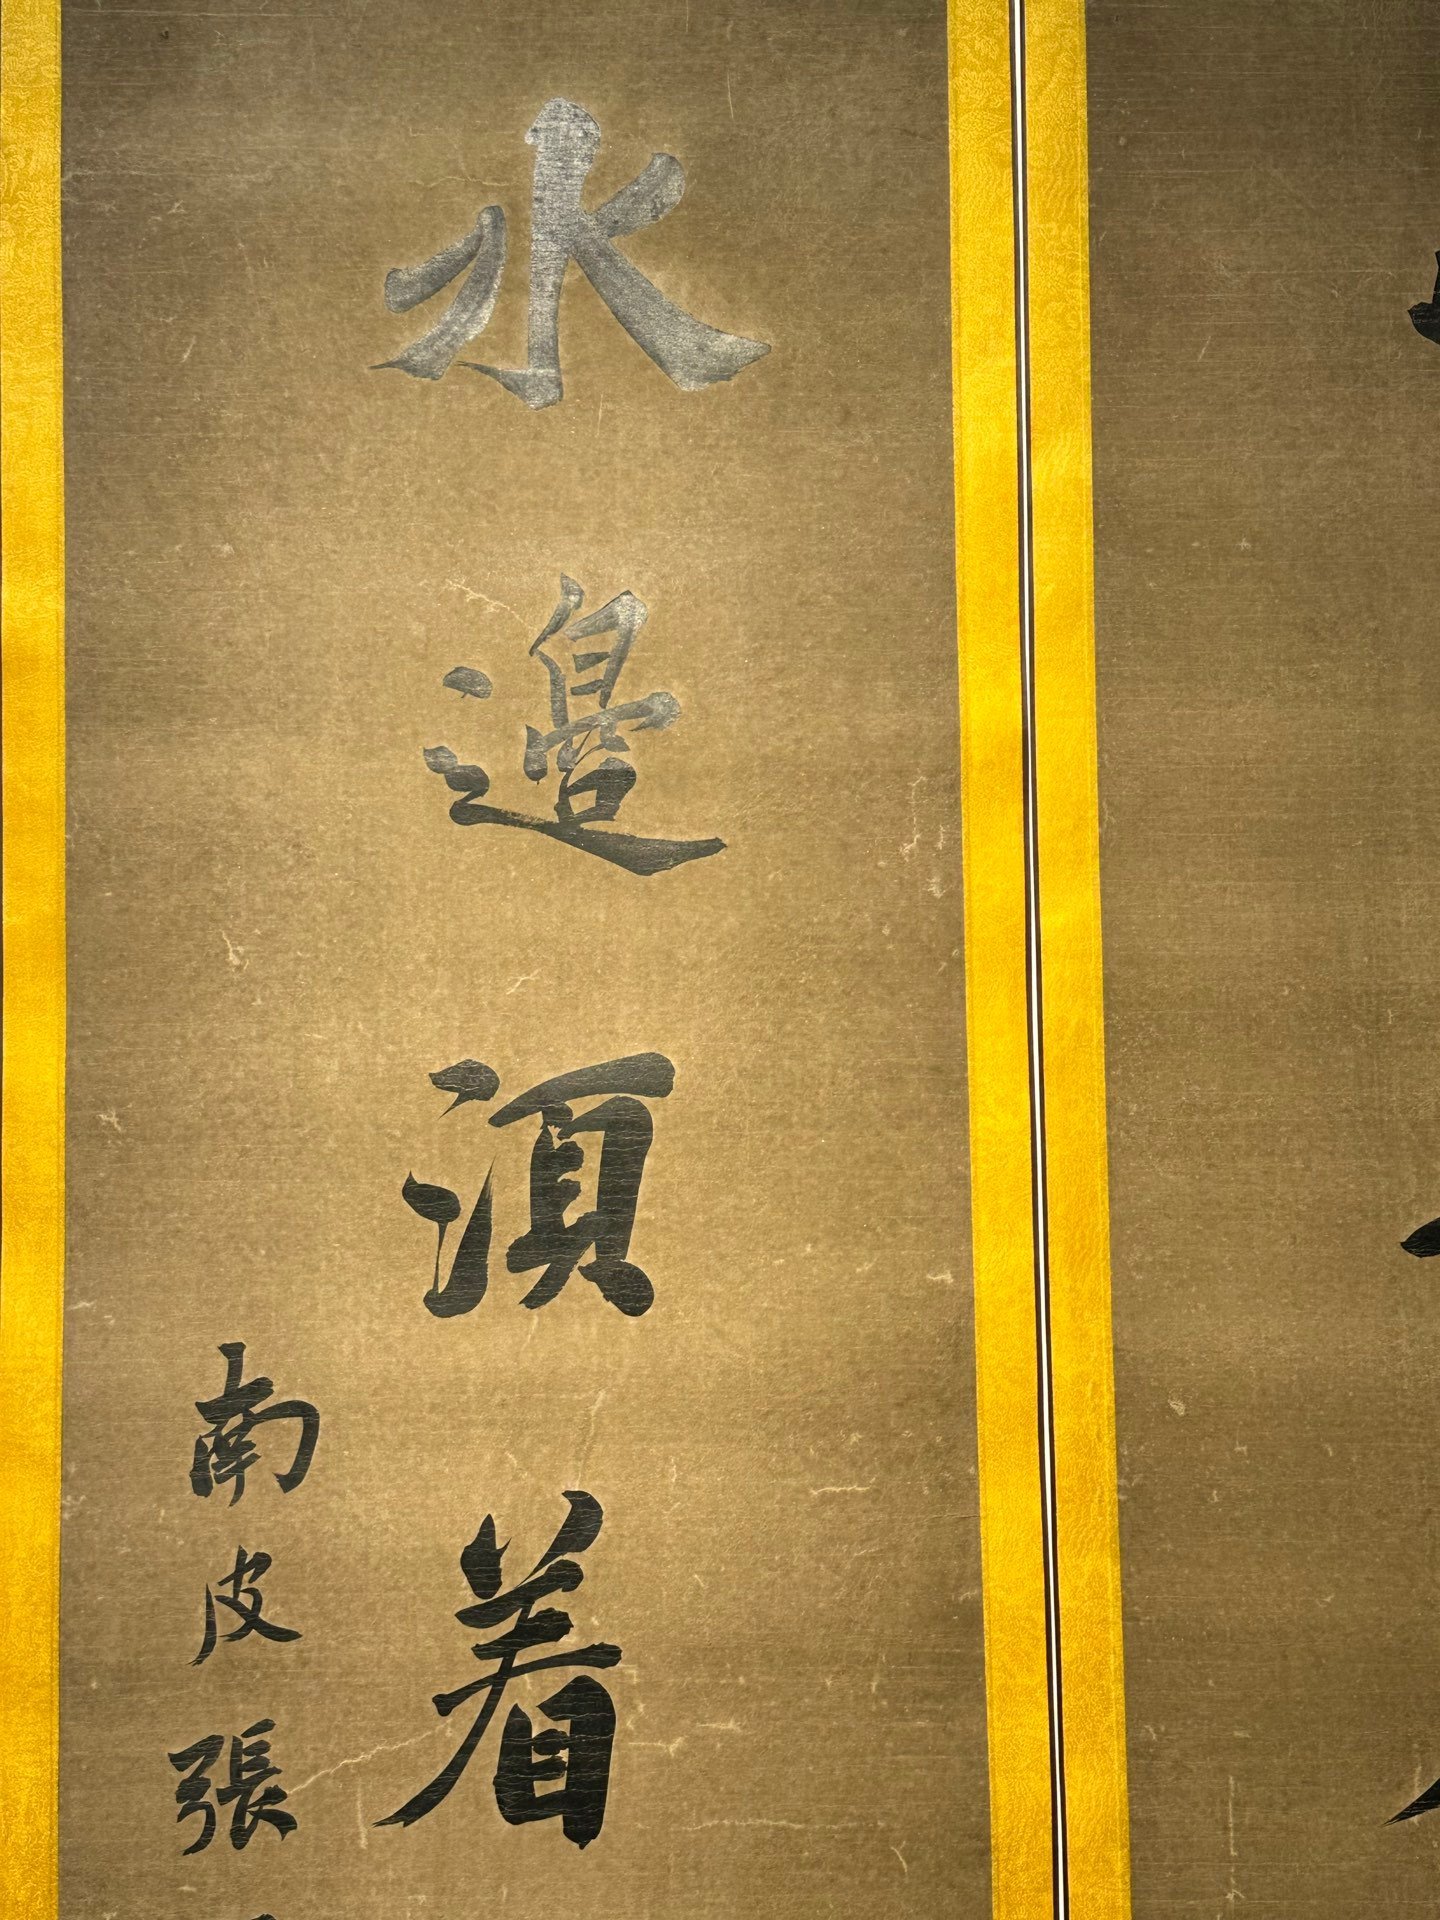 水邊須着
南皮張